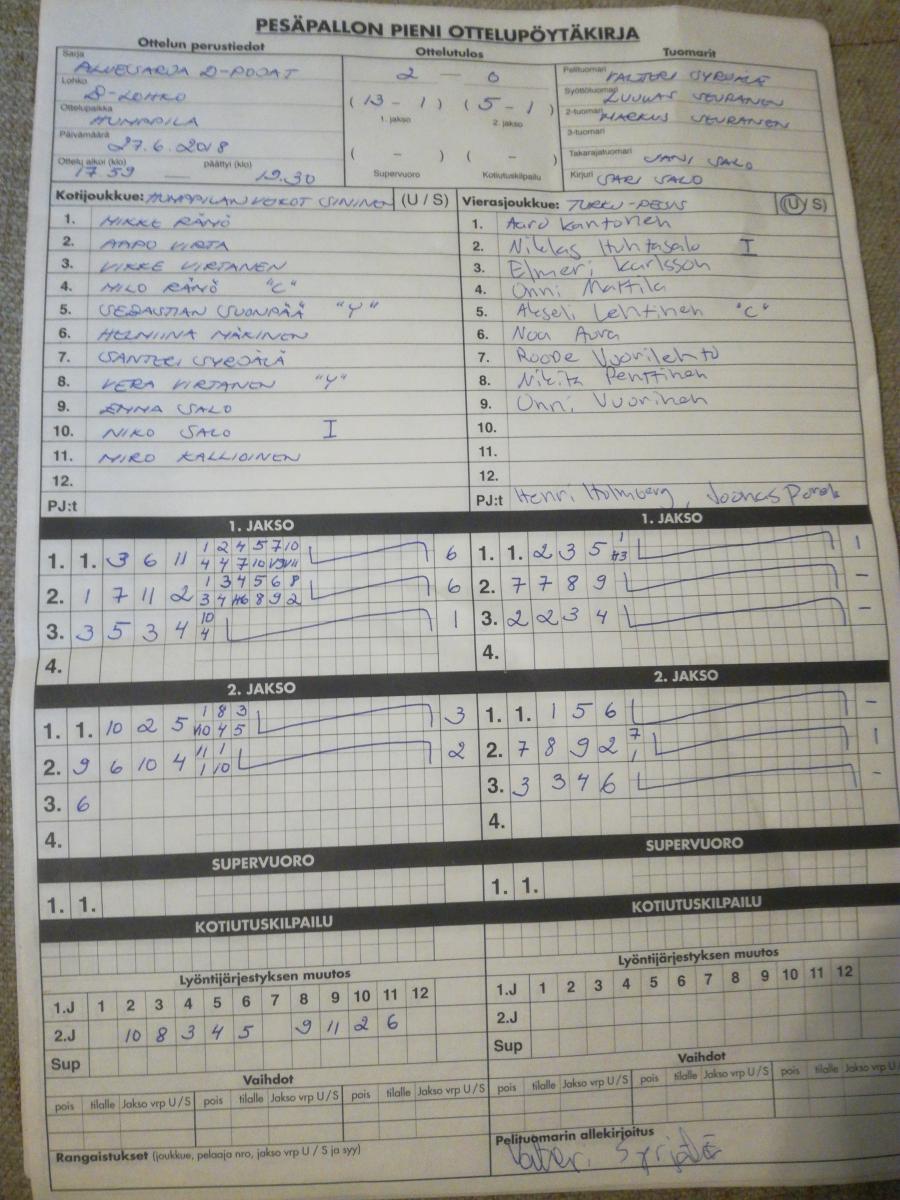 PESÄPALLON PIENI OTTELUPÖYTÄKIRJA
Ottelun perustiedot
Sarja ALUESARJA D-POJAT
Lohko D-LOHKO
Ottelupaikka HUMPPILA
Päivämäärä 27.6.2018
Ottelu alkoi (klo) 17.59 — päättyi (klo) 19.30
Ottelutulos
2 — 0
(13 - 1) (5 - 1)
1. jakso 2. jakso
( - ) ( - )
Supervuoro Kotiutuskilpailu
Tuomarit
Pelituomari VALTERI SYRJÄLÄ
Syöttötuomari LUUKAS SEURANEN
2-tuomari MARKUS SEURANEN
3-tuomari
Takarajatuomari JANI SALO
Kirjuri SARI SALO
Kotijoukkue: HUMPPILAN VEIKOT SININEN (U / S)
1. MIKKE RÄMÖ
2. AAPO VIRTA
3. VIKKE VIRTANEN
4. MILO RÄMÖ "C"
5. SEBASTIAN SUONPÄÄ "Y"
6. HELMIINA MÄKINEN
7. SANTERI SYRJÄLÄ
8. VERA VIRTANEN "Y"
9. EMMA SALO
10. NIKO SALO I
11. MIRO KALLIOINEN
12.
PJ:t
Vierasjoukkue: TURKU-PESIS (U / S)
1. Aaro Kantonen
2. Niklas Huhtasalo I
3. Elmeri Karlsson
4. Onni Mattila
5. Akseli Lehtinen "C"
6. Noa Aura
7. Roope Vuorilehto
8. Nikita Penttinen
9. Onni Vuorinen
10.
11.
12.
PJ:t Henri Holmberg, Joonas
1. JAKSO
1. 1. 3 6 11 1 2 4 5 7 10 6
4 4 7 10
2. 1 7 11 2 1 3 4 5 6 8 6
3 4 8 9 2
3. 3 5 3 4 10 1
4
4.
1. JAKSO
1. 1. 2 3 5 1 1
3
2. 7 7 8 9 —
3. 2 2 3 4 —
4.
2. JAKSO
1. 1. 10 2 5 1 8 3 3
10 4 5
2. 9 6 10 4 11 1 2
1 10
3. 6
4.
2. JAKSO
1. 1. 1 5 6 —
2. 7 8 9 2 7 1
1
3. 3 3 4 6 -
4.
SUPERVUORO
1. 1.
SUPERVUORO
1. 1.
KOTIUTUSKILPAILU
KOTIUTUSKILPAILU
Lyöntijärjestyksen muutos
1.J 1 2 3 4 5 6 7 8 9 10 11 12
2.J 10 8 3 4 5 9 11 2 6
Sup
Lyöntijärjestyksen muutos
1.J 1 2 3 4 5 6 7 8 9 10 11 12
2.J
Sup
Vaihdot
pois tilalle Jakso vrp U / S pois tilalle Jakso vrp U / S pois tilalle
Vaihdot
pois tilalle Jakso vrp U / S pois tilalle Jakso vrp U / S pois tilalle Jakso vrp U /
Rangaistukset (joukkue, pelaaja nro, jakso vrp U / S ja syy)
Pelituomarin allekirjoitus
Valteri Syrjälä